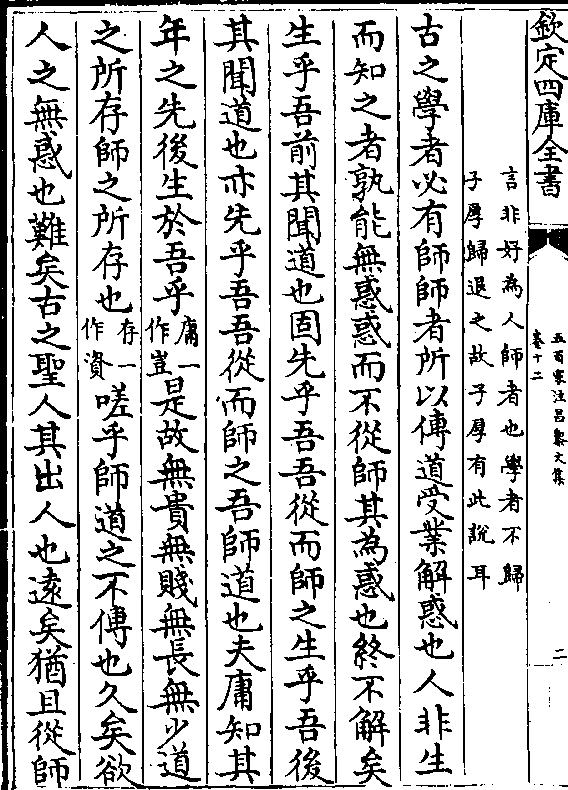 欽定四庫全書
五百家注昌黎文集
卷十二
二
言非好為人師者也學者不歸
子厚歸退之故子厚有此說耳
古之學者必有師師者所以傳道受業解惑也人非生
而知之者孰能無惑惑而不從師其為惑也終不解矣
生乎吾前其聞道也固先乎吾吾從而師之生乎吾後
其聞道也亦先乎吾吾從而師之吾師道也夫庸知其
年之先後生於吾乎庸一作豈是故無貴無賤無長無少道
之所存師之所存也存一作資嗟乎師道之不傳也久矣欲
人之無惑也難矣古之聖人其出人也遠矣猶且從師